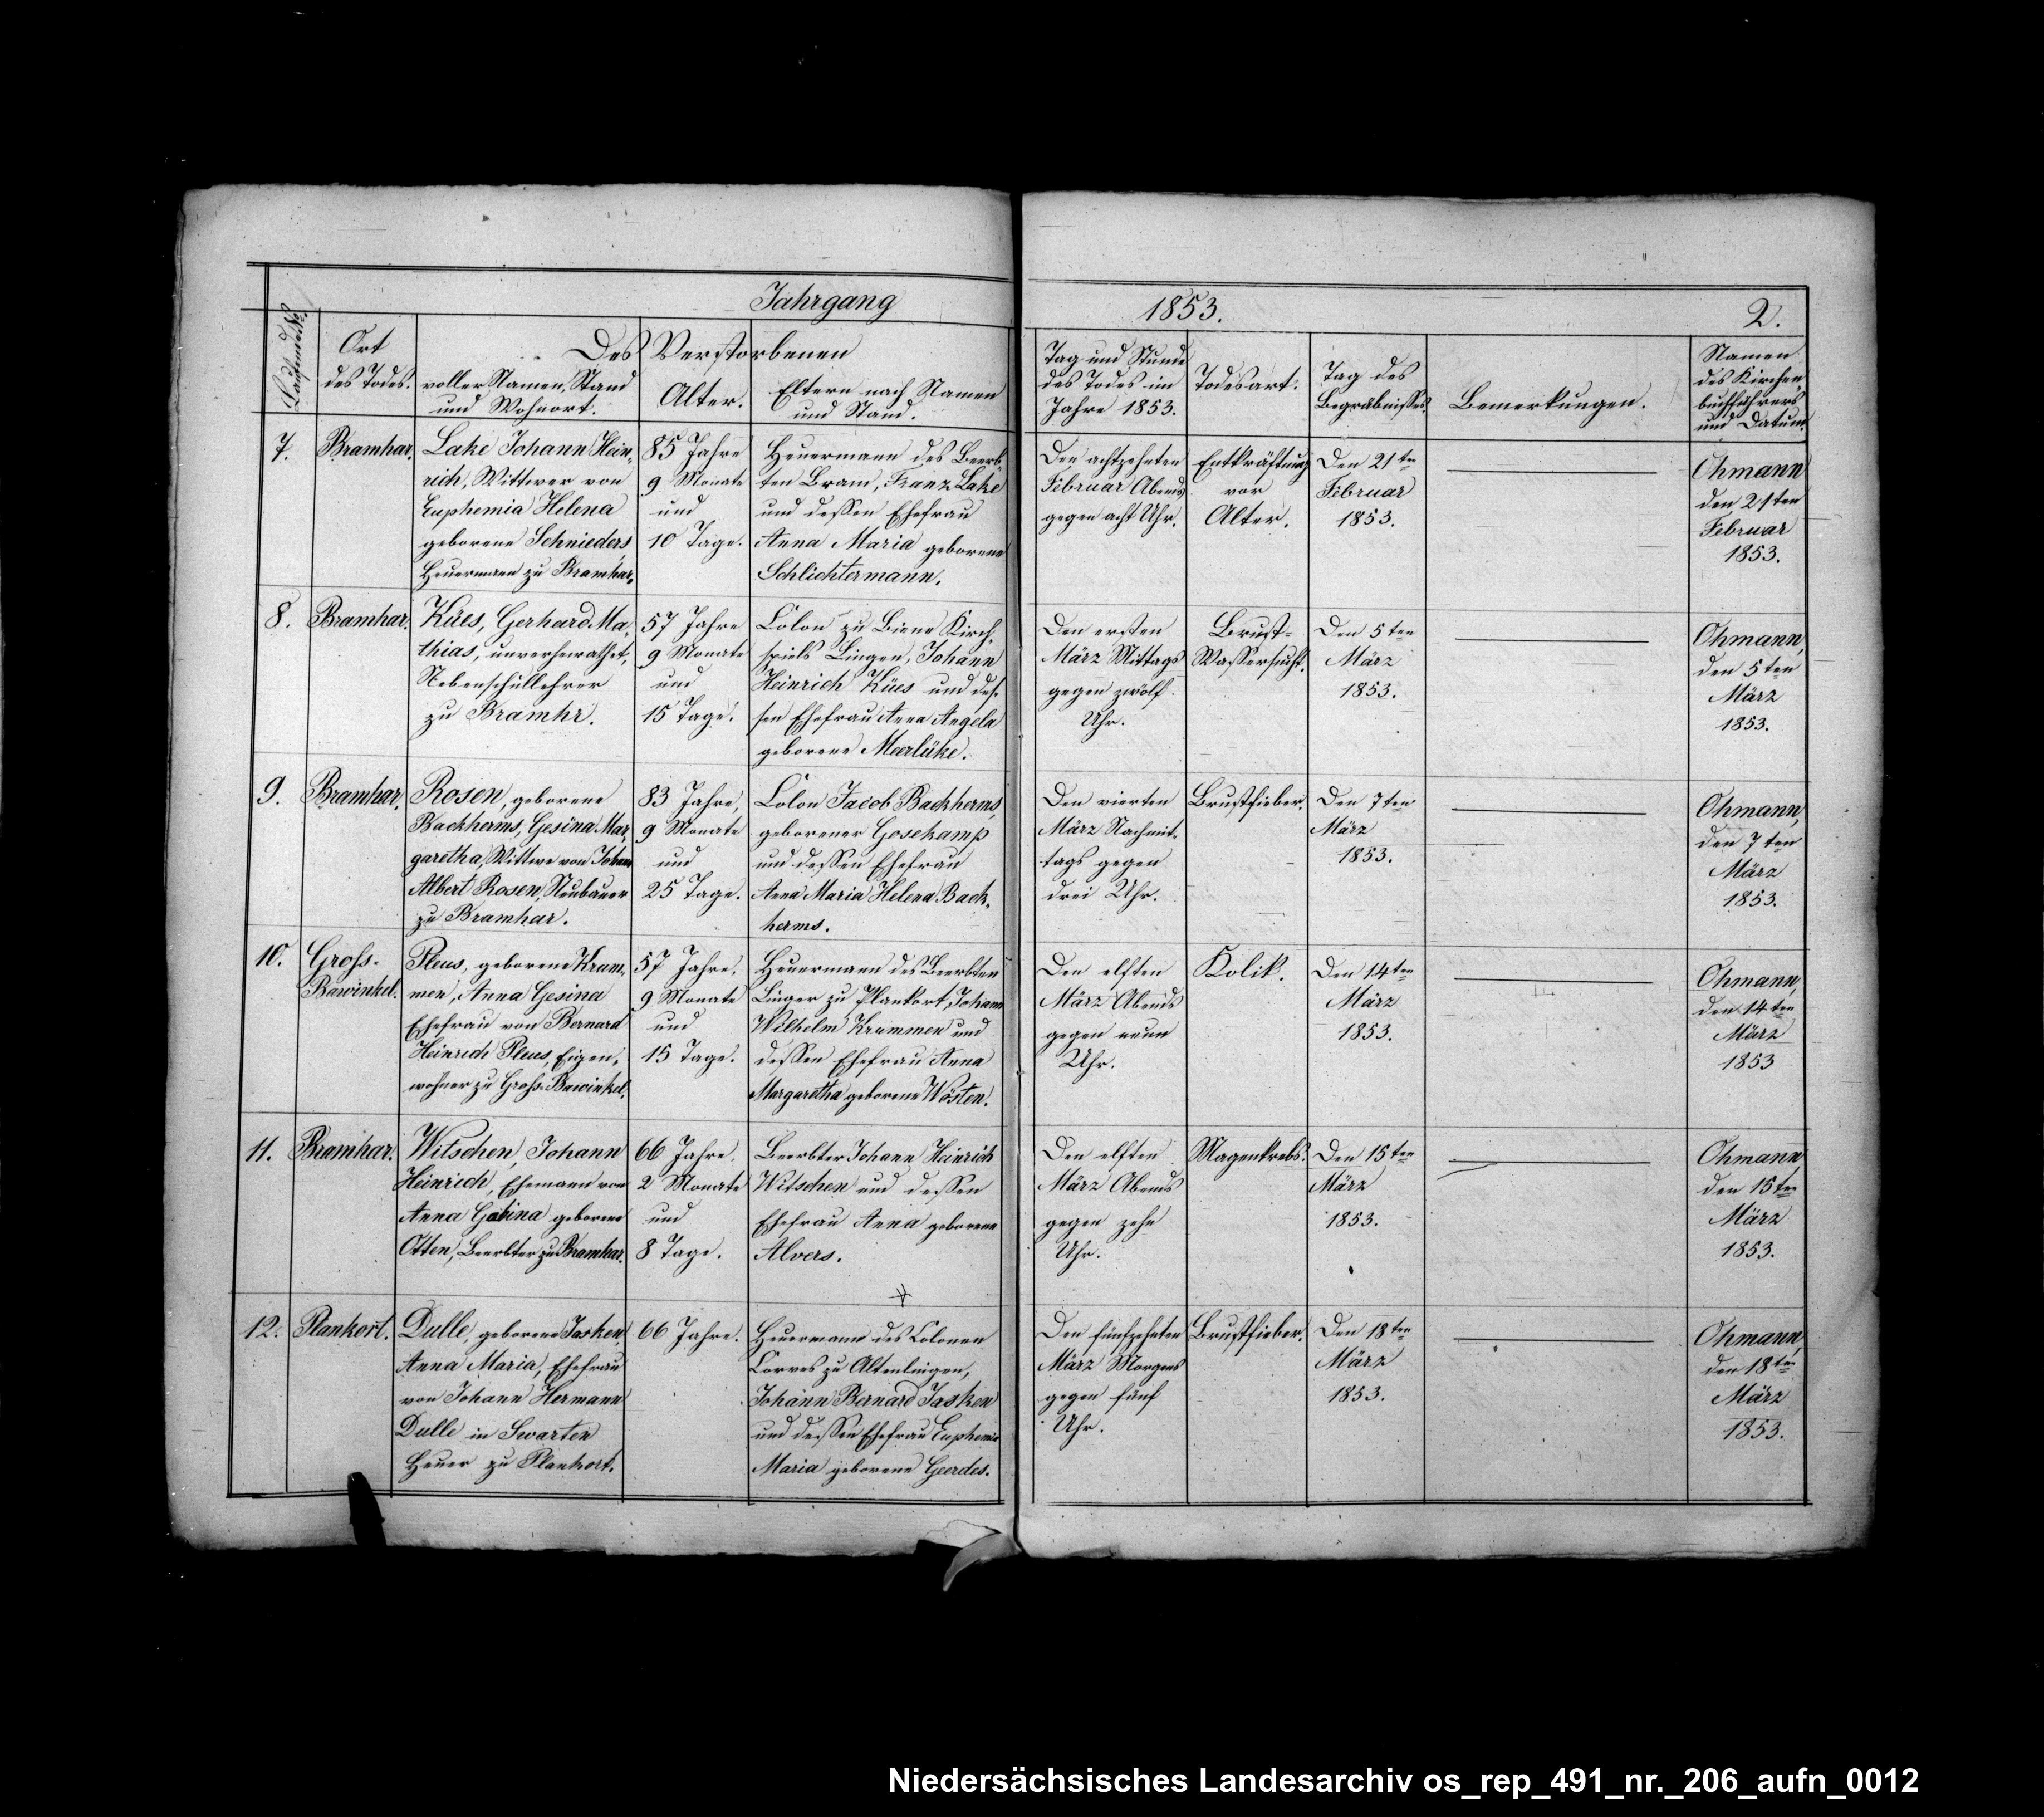 Jahrgang 1853. 2.
Laufende No.
Ort
des Todes.
Des Verstorbenen
voller Namen, Stand
und Wohnort.
Alter.
Eltern nach Namen
und Stand.
Tag und Stunde
des Todes im
Jahre 1853.
Todesart.
Tag des
Begräbnisses.
Bemerkungen.
Namen
des Kirchen-
buchführers
und Datum.
7.
Bramhar.
Lake Johann Hein-
rich, Wittwer von
Euphemia Helena
geborene Schnieders
Heuermann zu Bramhar.
85 Jahre
9 Monate
und
10 Tage.
Heuermann des Beerb-
ten Bram, Franz Lake
und dessen Ehefrau
Anna Maria geborene
Schlichtermann.
Den achtzehnten
Februar Abends
gegen acht Uhr.
Entkräftung
vor
Alter.
Den 21ten
Februar
1853.
Ohmann
den 21ten
Februar
1853.
8.
Bramhar.
Kües, Gerhard Ma-
thias, unverheirathet,
Nebenschullehrer
zu Bramhr.
57 Jahre
9 Monate
und
15 Tage.
Colon zu Biene Kirch-
spiels Lingen, Johann
Heinrich Kües und des-
sen Ehefrau Anna Angela
geborene Meerlüke.
Den ersten
März Mittags
gegen zwölf
Uhr.
Brust-
Wassersucht.
Den 5ten
März
1853.
Ohmann,
den 5ten
März
1853.
9.
Bramhar.
Rosen, geborene
Backherms, Gesina Mar-
garetha, Wittwe von Johann
Albert Rosen, Neubauer
zu Bramhar.
83 Jahre,
9 Monate
und
25 Tage.
Colon Jacob Backherms,
geborener Gosekamp
und dessen Ehefrau
Anna Maria Helena Back-
herms.
Den vierten
März Nachmit-
tags gegen
drei Uhr.
Brustfieber.
Den 7ten
März
1853.
Ohmann,
den 7ten
März
1853.
10.
Gross-
Bawinkel.
Pleus, geborene Krum-
men, Anna Gesina
Ehefrau von Bernard
Heinrich Pleus, Eigen-
wohner zu Gross-Bawinkel.
57 Jahre.
9 Monate
und
15 Tage.
Heuermann des Beerbten
Linger zu Plankort, Johann
Wilhelm Krummen und
dessen Ehefrau Anna
Margaretha geborene Wösten.
Den elften
März Abends
gegen neun
Uhr.
Kolik.
Den 14ten
März
1853.
Ohmann,
den 14ten
März
1853
11.
Bramhar.
Witschen, Johann
Heinrich, Ehemann von
Anna Gabina geborene
Otten, Beerbter zu Bramhar.
66 Jahre.
2 Monate
und
8 Tage.
Beerbter Johann Heinrich
Witschen und dessen
Ehefrau Anna geborene
Alvers.
Den elften
März Abends
gegen zehn
Uhr.
Magenkrebs.
Den 15ten
März
1853.
Ohmann
den 15ten
März
1853.
12.
Plankort.
Dulle, geborene Jasken,
Anna Maria, Ehefrau
von Johann Hermann
Dulle in Swarten
Heuer zu Plankort.
66 Jahre.
Heuermann des Colonen
Corves zu Altenlingen,
Johann Bernard Jasken
und dessen Ehefrau Euphemia
Maria geborene Geerdes.
Den fünfzehnten
März Morgens
gegen fünf
Uhr.
Brustfieber.
Den 18ten
März
1853.
Ohmann,
den 18ten
März
1853.
Niedersächsisches Landesarchiv os_rep_491_nr._206_aufn_0012